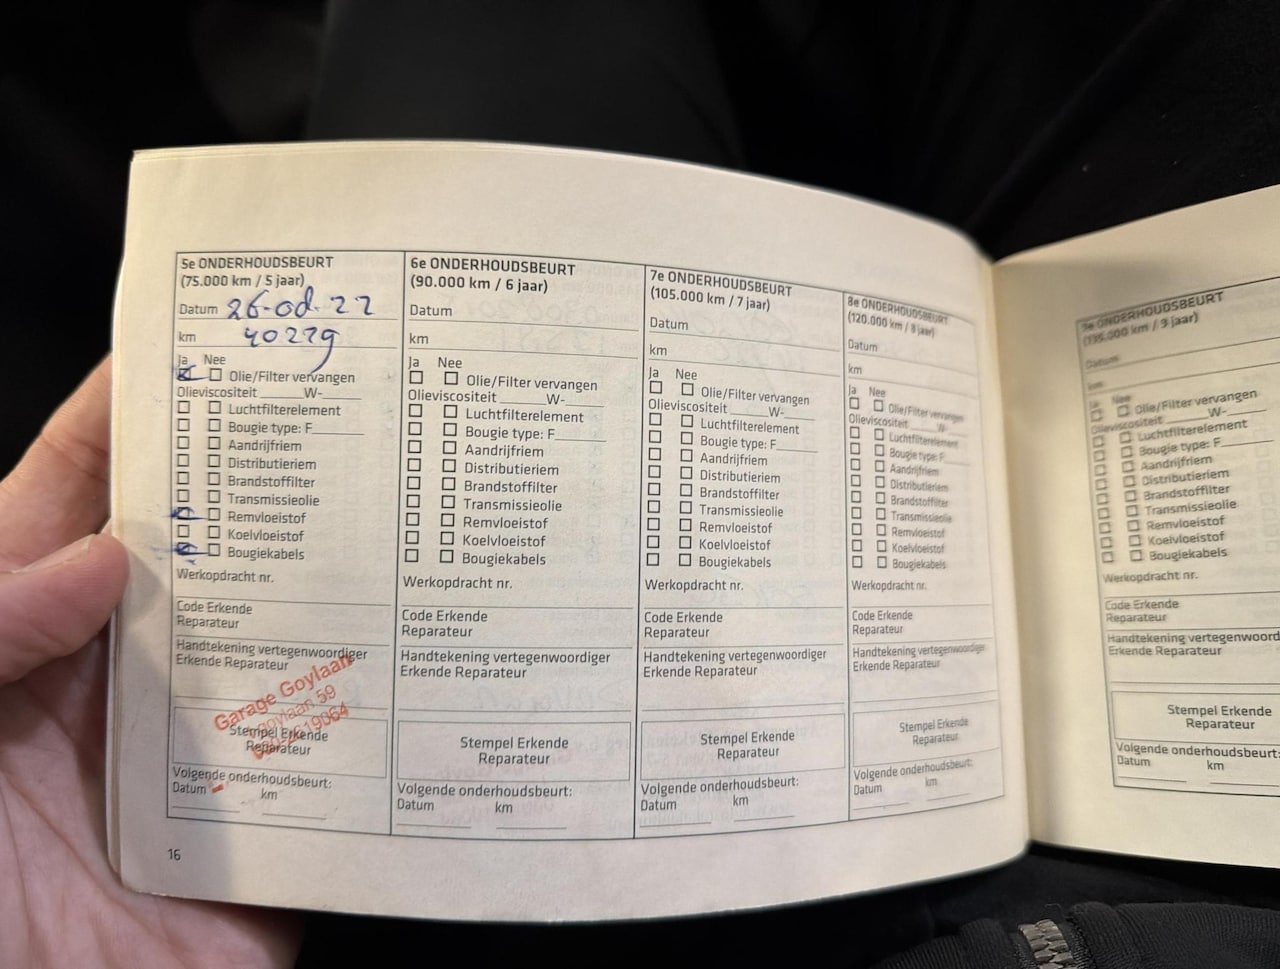 5e ONDERHOUDSBEURT
(75.000 km / 5 jaar)
Datum 26-od-22
km 40229
Ja Nee
Olie/Filter vervangen
Olieviscositeit ______W-______
Luchtfilterelement
Bougie type: F______
Aandrijfriem
Distributieriem
Brandstoffilter
Transmissieolie
Remvloeistof
Koelvloeistof
Bougiekabels
Werkopdracht nr.
Code Erkende
Reparateur
Handtekening vertegenwoordiger
Erkende Reparateur
Garage Goylaan
goylaan 59
Stempel Erkende
Reparateur
Volgende onderhoudsbeurt:
Datum km
16
6e ONDERHOUDSBEURT
(90.000 km / 6 jaar)
Datum
km
Ja Nee
Olie/Filter vervangen
Olieviscositeit ______W-______
Luchtfilterelement
Bougie type: F______
Aandrijfriem
Distributieriem
Brandstoffilter
Transmissieolie
Remvloeistof
Koelvloeistof
Bougiekabels
Werkopdracht nr.
Code Erkende
Reparateur
Handtekening vertegenwoordiger
Erkende Reparateur
Stempel Erkende
Reparateur
Volgende onderhoudsbeurt:
Datum km
7e ONDERHOUDSBEURT
(105.000 km / 7 jaar)
Datum
km
Ja Nee
Olie/Filter vervangen
Olieviscositeit ______W-______
Luchtfilterelement
Bougie type: F______
Aandrijfriem
Distributieriem
Brandstoffilter
Transmissieolie
Remvloeistof
Koelvloeistof
Bougiekabels
Werkopdracht nr.
Code Erkende
Reparateur
Handtekening vertegenwoordiger
Erkende Reparateur
Stempel Erkende
Reparateur
Volgende onderhoudsbeurt:
Datum km
8e ONDERHOUDSBEURT
(120.000 km / 8 jaar)
Datum
km
Ja Nee
Olie/Filter vervangen
Olieviscositeit ______W-______
Luchtfilterelement
Bougie type: F______
Aandrijfriem
Distributieriem
Brandstoffilter
Transmissieolie
Remvloeistof
Koelvloeistof
Bougiekabels
Werkopdracht nr.
Code Erkende
Reparateur
Handtekening vertegenwoordiger
Erkende Reparateur
Stempel Erkende
Reparateur
Volgende onderhoudsbeurt:
Datum km
9e ONDERHOUDSBEURT
(135.000 km / 9 jaar)
Datum
km
Ja Nee
Olie/Filter vervangen
Olieviscositeit ______W-______
Luchtfilterelement
Bougie type: F______
Aandrijfriem
Distributieriem
Brandstoffilter
Transmissieolie
Remvloeistof
Koelvloeistof
Bougiekabels
Werkopdracht nr.
Code Erkende
Reparateur
Handtekening vertegenwoord
Erkende Reparateur
Stempel Erkende
Reparateur
Volgende onderhoudsbeurt:
Datum km